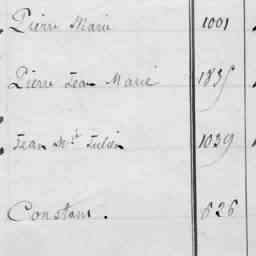 Pierre Marie 1001
Pierre Jean Marie 1835
Jean Mie Julien 1039
Constant. 626